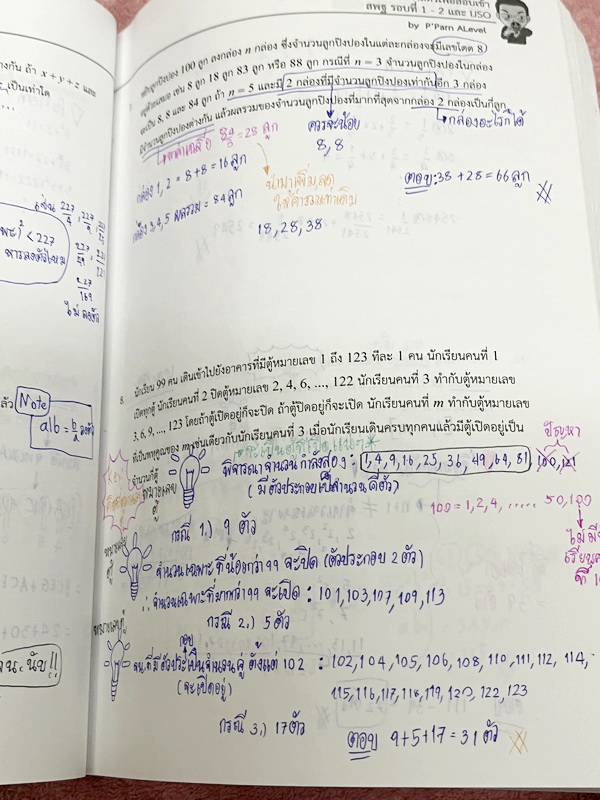 สพฐ รอบที่ 1 - 2 และ USO
by P'Pam ALevel
ปิงปอง 100 ลูก ลงกล่อง n กล่อง ซึ่งจำนวนลูกปิงปองในแต่ละกล่องจะมีเลขโดด 8
เช่น 8 ลูก 18 ลูก 83 ลูก หรือ 88 ลูก กรณีที่ n = 3 จำนวนลูกปิงปองในกล่อง
เป็น 8, 8 และ 84 ลูก ถ้า n = 5 และมี 2 กล่องที่มีจำนวนลูกปิงปองเท่ากัน อีก 3 กล่อง
มีจำนวนลูกปิงปองต่างกัน แล้วผลรวมของจำนวนลูกปิงปองที่มากที่สุดจากกล่อง 2 กล่องเป็นกี่ลูก
= 28 ลูก
ควรจะน้อย
กล่องอะไรก็ได้
8, 8
กล่อง 1, 2 = 8+8 = 16 ลูก
ตอบ : 38 + 28 = 66 ลูก
ผลรวม = 84 ลูก
18, 28, 38
างกัน ถ้า x + y + z และ
เป็นเท่าใด
< 227
ไม่ลงตัว
Note
a|b = b/a ลงตัว
8. นักเรียน 99 คน เดินเข้าไปยังอาคารที่มีตู้หมายเลข 1 ถึง 123 ทีละ 1 คน นักเรียนคนที่ 1
เปิดทุกตู้ นักเรียนคนที่ 2 ปิดตู้หมายเลข 2, 4, 6, ..., 122 นักเรียนคนที่ 3 ทำกับตู้หมายเลข
3, 6, 9, ..., 123 โดยถ้าตู้เปิดอยู่ก็จะปิด ถ้าตู้ปิดอยู่ก็จะเปิด นักเรียนคนที่ m ทำกับตู้หมายเลข
ที่เป็นพหุคูณของ m เช่นเดียวกับนักเรียนคนที่ 3 เมื่อนักเรียนเดินครบทุกคนแล้วมีตู้เปิดอยู่เป็น
จำนวนกี่ตู้
ปัญหา
พิจารณาจำนวนกำลังสอง : 1, 4, 9, 16, 25, 36, 49, 64, 81, 100, 121
(มีตัวประกอบเป็นจำนวนคี่ตัว)
100 = 1, 2, 4, ..... 50, 100
กรณี 1.) 9 ตัว
จำนวนเฉพาะที่น้อยกว่า 99 จะปิด (ตัวประกอบ 2 ตัว)
∴ จำนวนเฉพาะที่มากกว่า 99 จะเปิด : 101, 103, 107, 109, 113
กรณี 2.) 5 ตัว
จน.ที่มีตัวประกอบเป็นจำนวนคู่ ตั้งแต่ 102 : 102, 104, 105, 106, 108, 110, 111, 112, 114,
(จะเปิดอยู่)
115, 116, 117, 118, 119, 120, 122, 123
กรณี 3.) 17 ตัว
ตอบ 9 + 5 + 17 = 31 ตัว